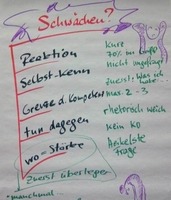 Schwächen?
Reaktion
kurz
70% im Griff
nicht ungefragt
Selbst-kenn
zuerst: Was ich
habe -
Grenze d. Kompetenz
max. 2-3
tun dagegen
rhetorisch weich
kein KO
wo - Stärke
heikelste
Frage
zuerst überlegen
- manchmal